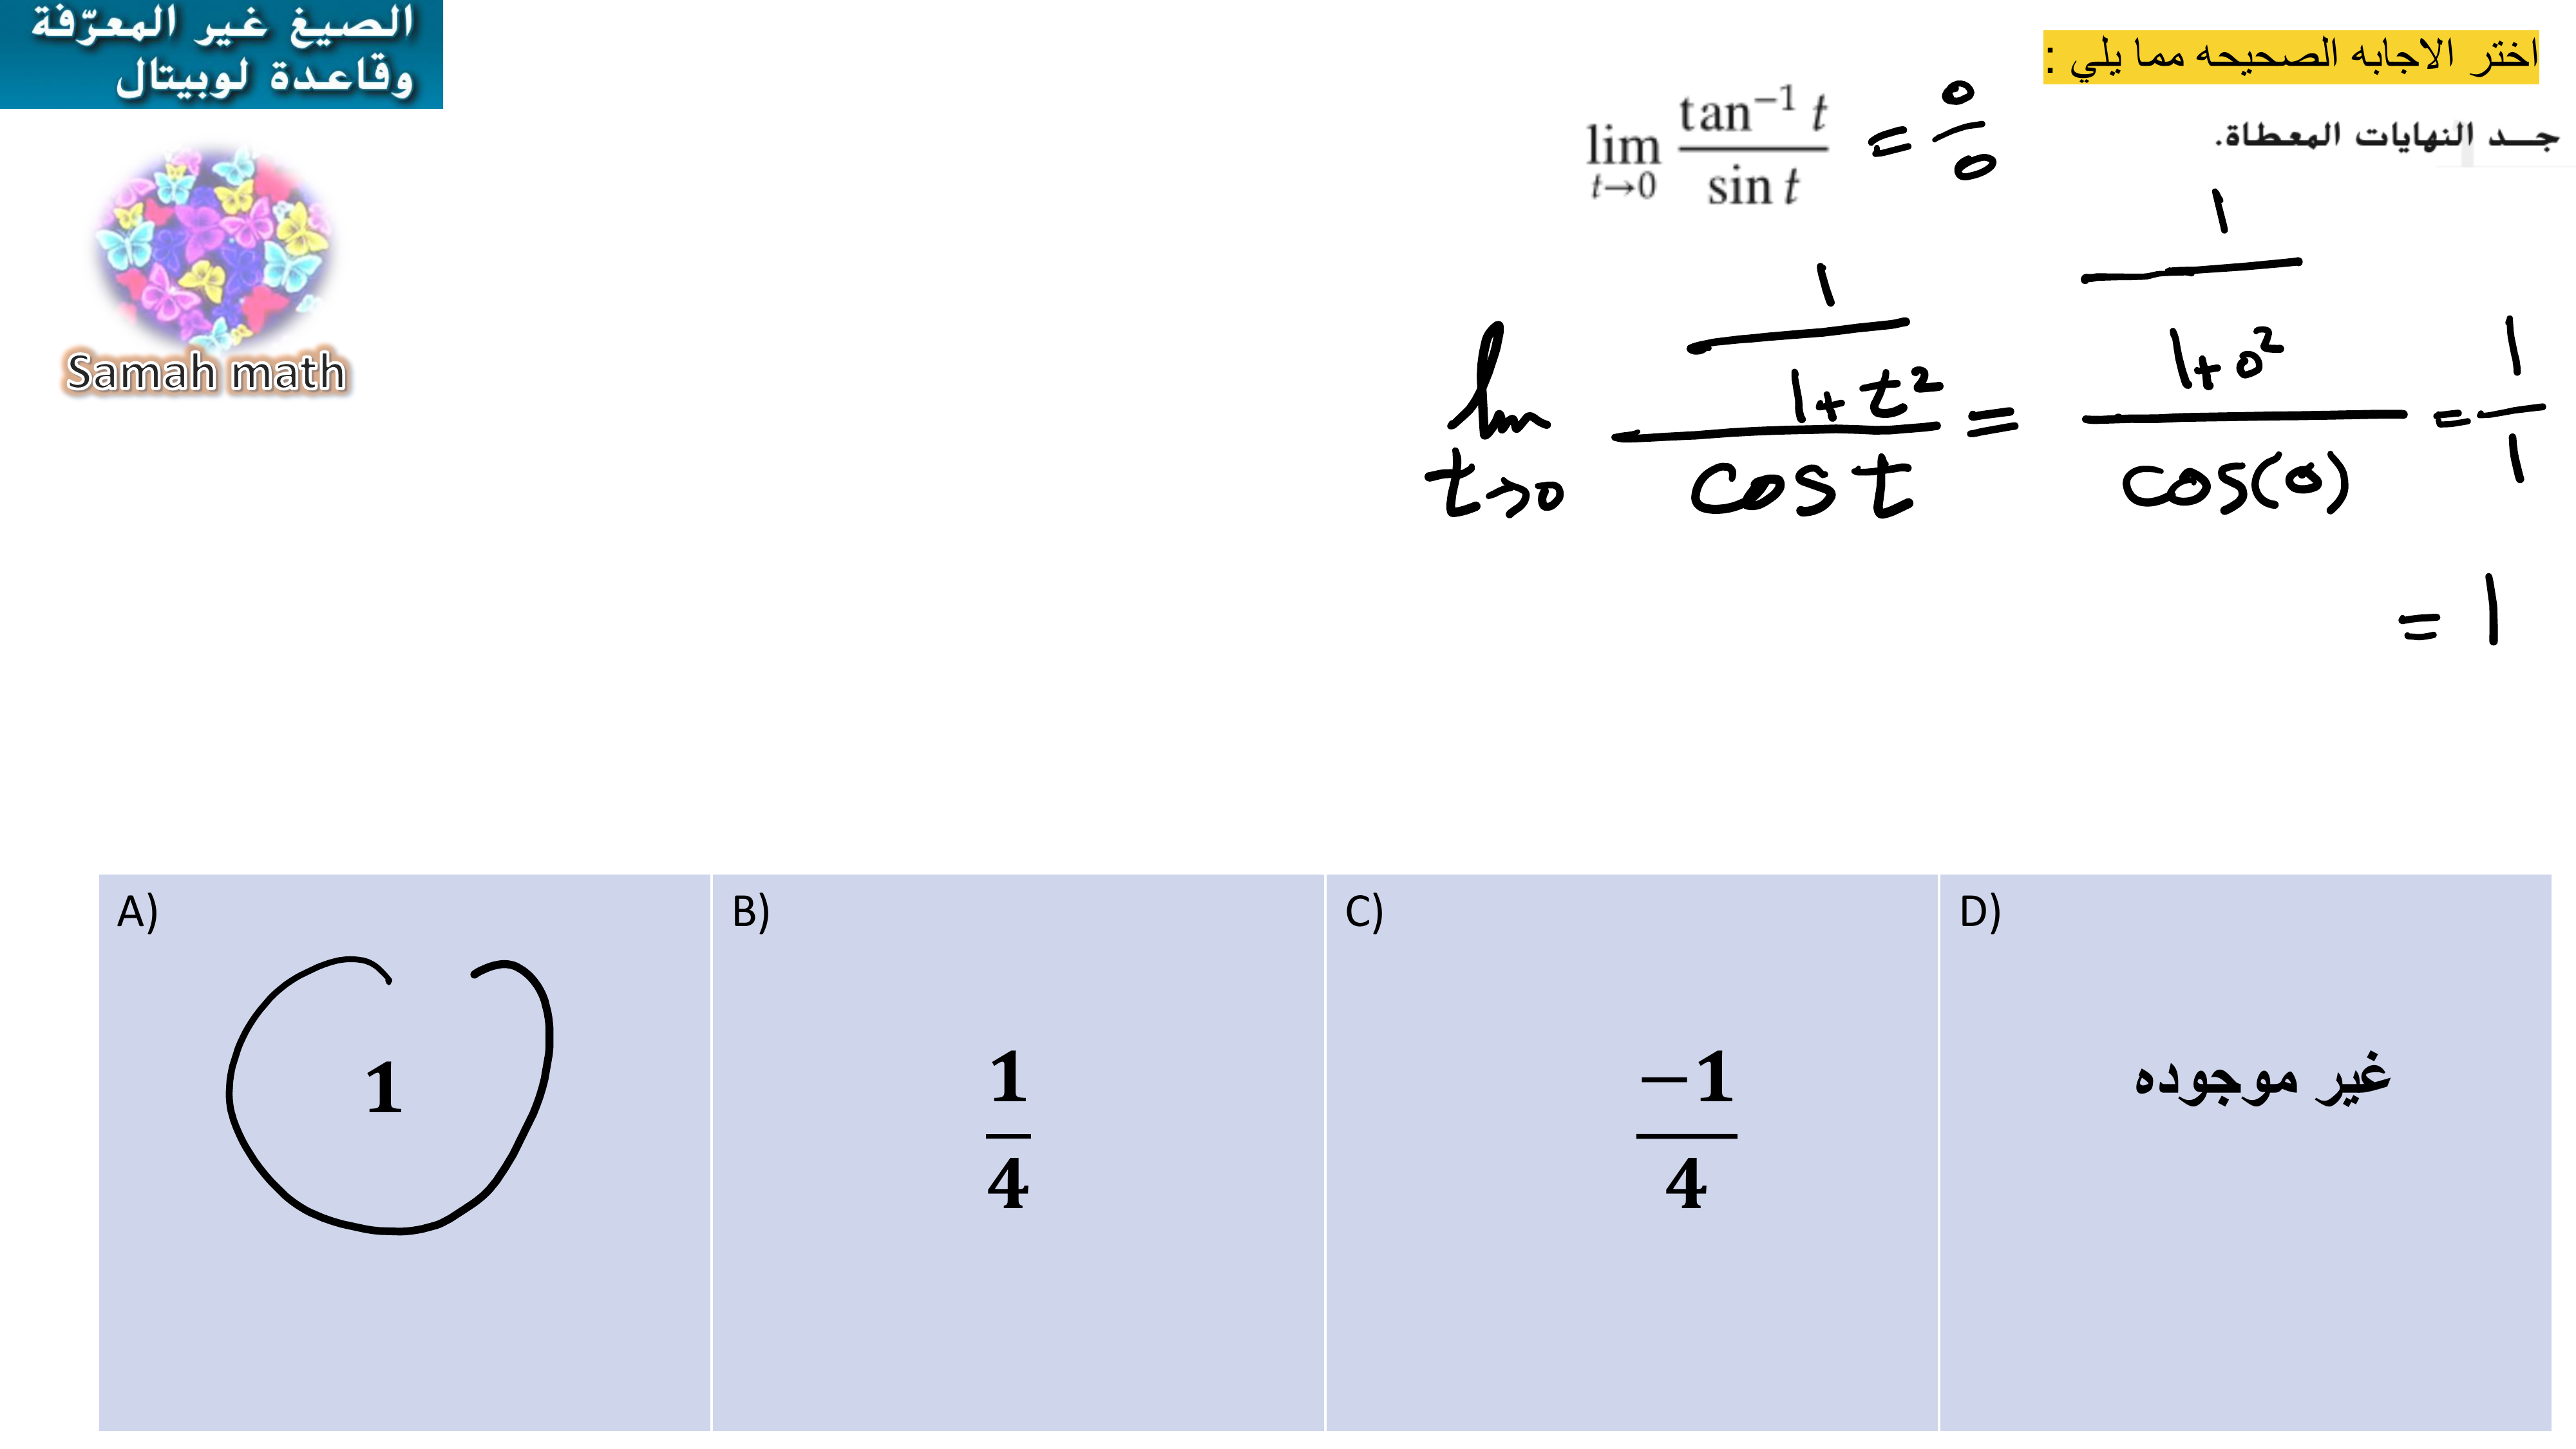 الصيغ غير المعرّفة
وقاعدة لوبيتال
Samah math
اختر الاجابه الصحيحه مما يلي :
جد النهايات المعطاة.
lim t→0 tan⁻¹ t / sin t = 0/0
lim t→0 (1/(1+t²)) / cos t = (1/(1+0²)) / cos(0) = 1/1
= 1
A)
1
B)
1/4
C)
−1/4
D)
غير موجوده